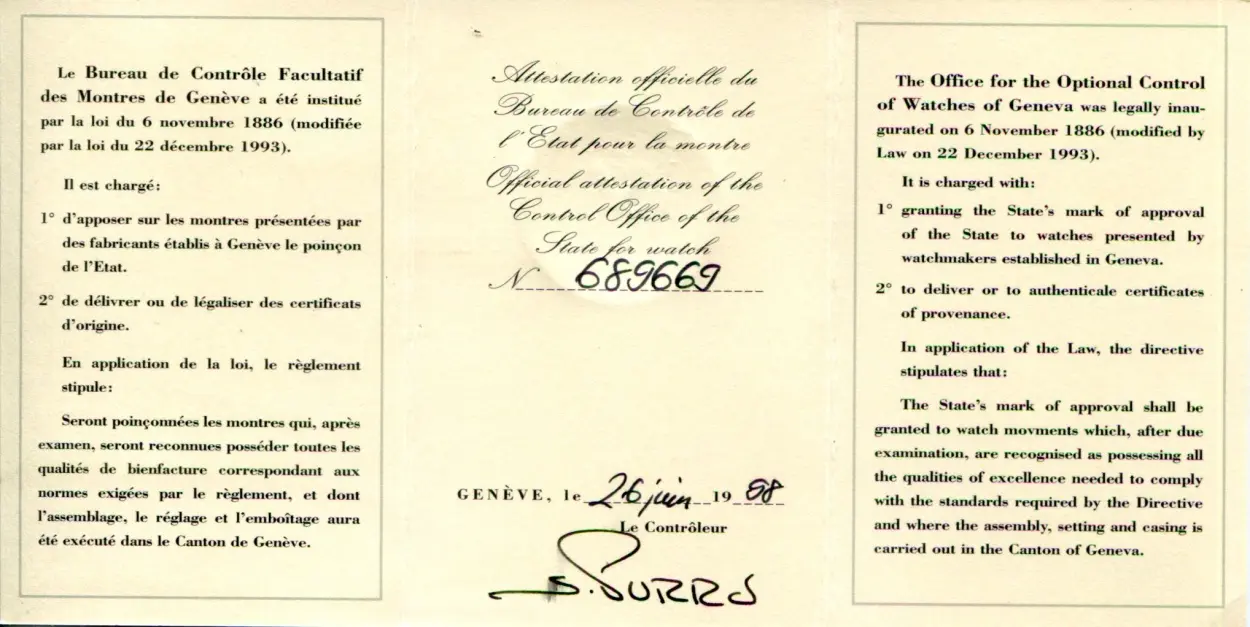 Le Bureau de Contrôle Facultatif
des Montres de Genève a été institué
par la loi du 6 novembre 1886 (modifiée
par la loi du 22 décembre 1993).
Il est chargé:
1° d'apposer sur les montres présentées par
des fabricants établis à Genève le poinçon
de l'Etat.
2° de délivrer ou de légaliser des certificats
d'origine.
En application de la loi, le règlement
stipule:
Seront poinçonnées les montres qui, après
examen, seront reconnues posséder toutes les
qualités de bienfacture correspondant aux
normes exigées par le règlement, et dont
l'assemblage, le réglage et l'emboîtage aura
été exécuté dans le Canton de Genève.
Attestation officielle du
Bureau de Contrôle de
l'Etat pour la montre
Official attestation of the
Control Office of the
State for watch
N 689669
GENÈVE, le 26 juin 19 98
Le Contrôleur
The Office for the Optional Control
of Watches of Geneva was legally inau-
gurated on 6 November 1886 (modified by
Law on 22 December 1993).
It is charged with:
1° granting the State's mark of approval
of the State to watches presented by
watchmakers established in Geneva.
2° to deliver or to authenticale certificates
of provenance.
In application of the Law, the directive
stipulates that:
The State's mark of approval shall be
granted to watch movments which, after due
examination, are recognised as possessing all
the qualities of excellence needed to comply
with the standards required by the Directive
and where the assembly, setting and casing is
carried out in the Canton of Geneva.